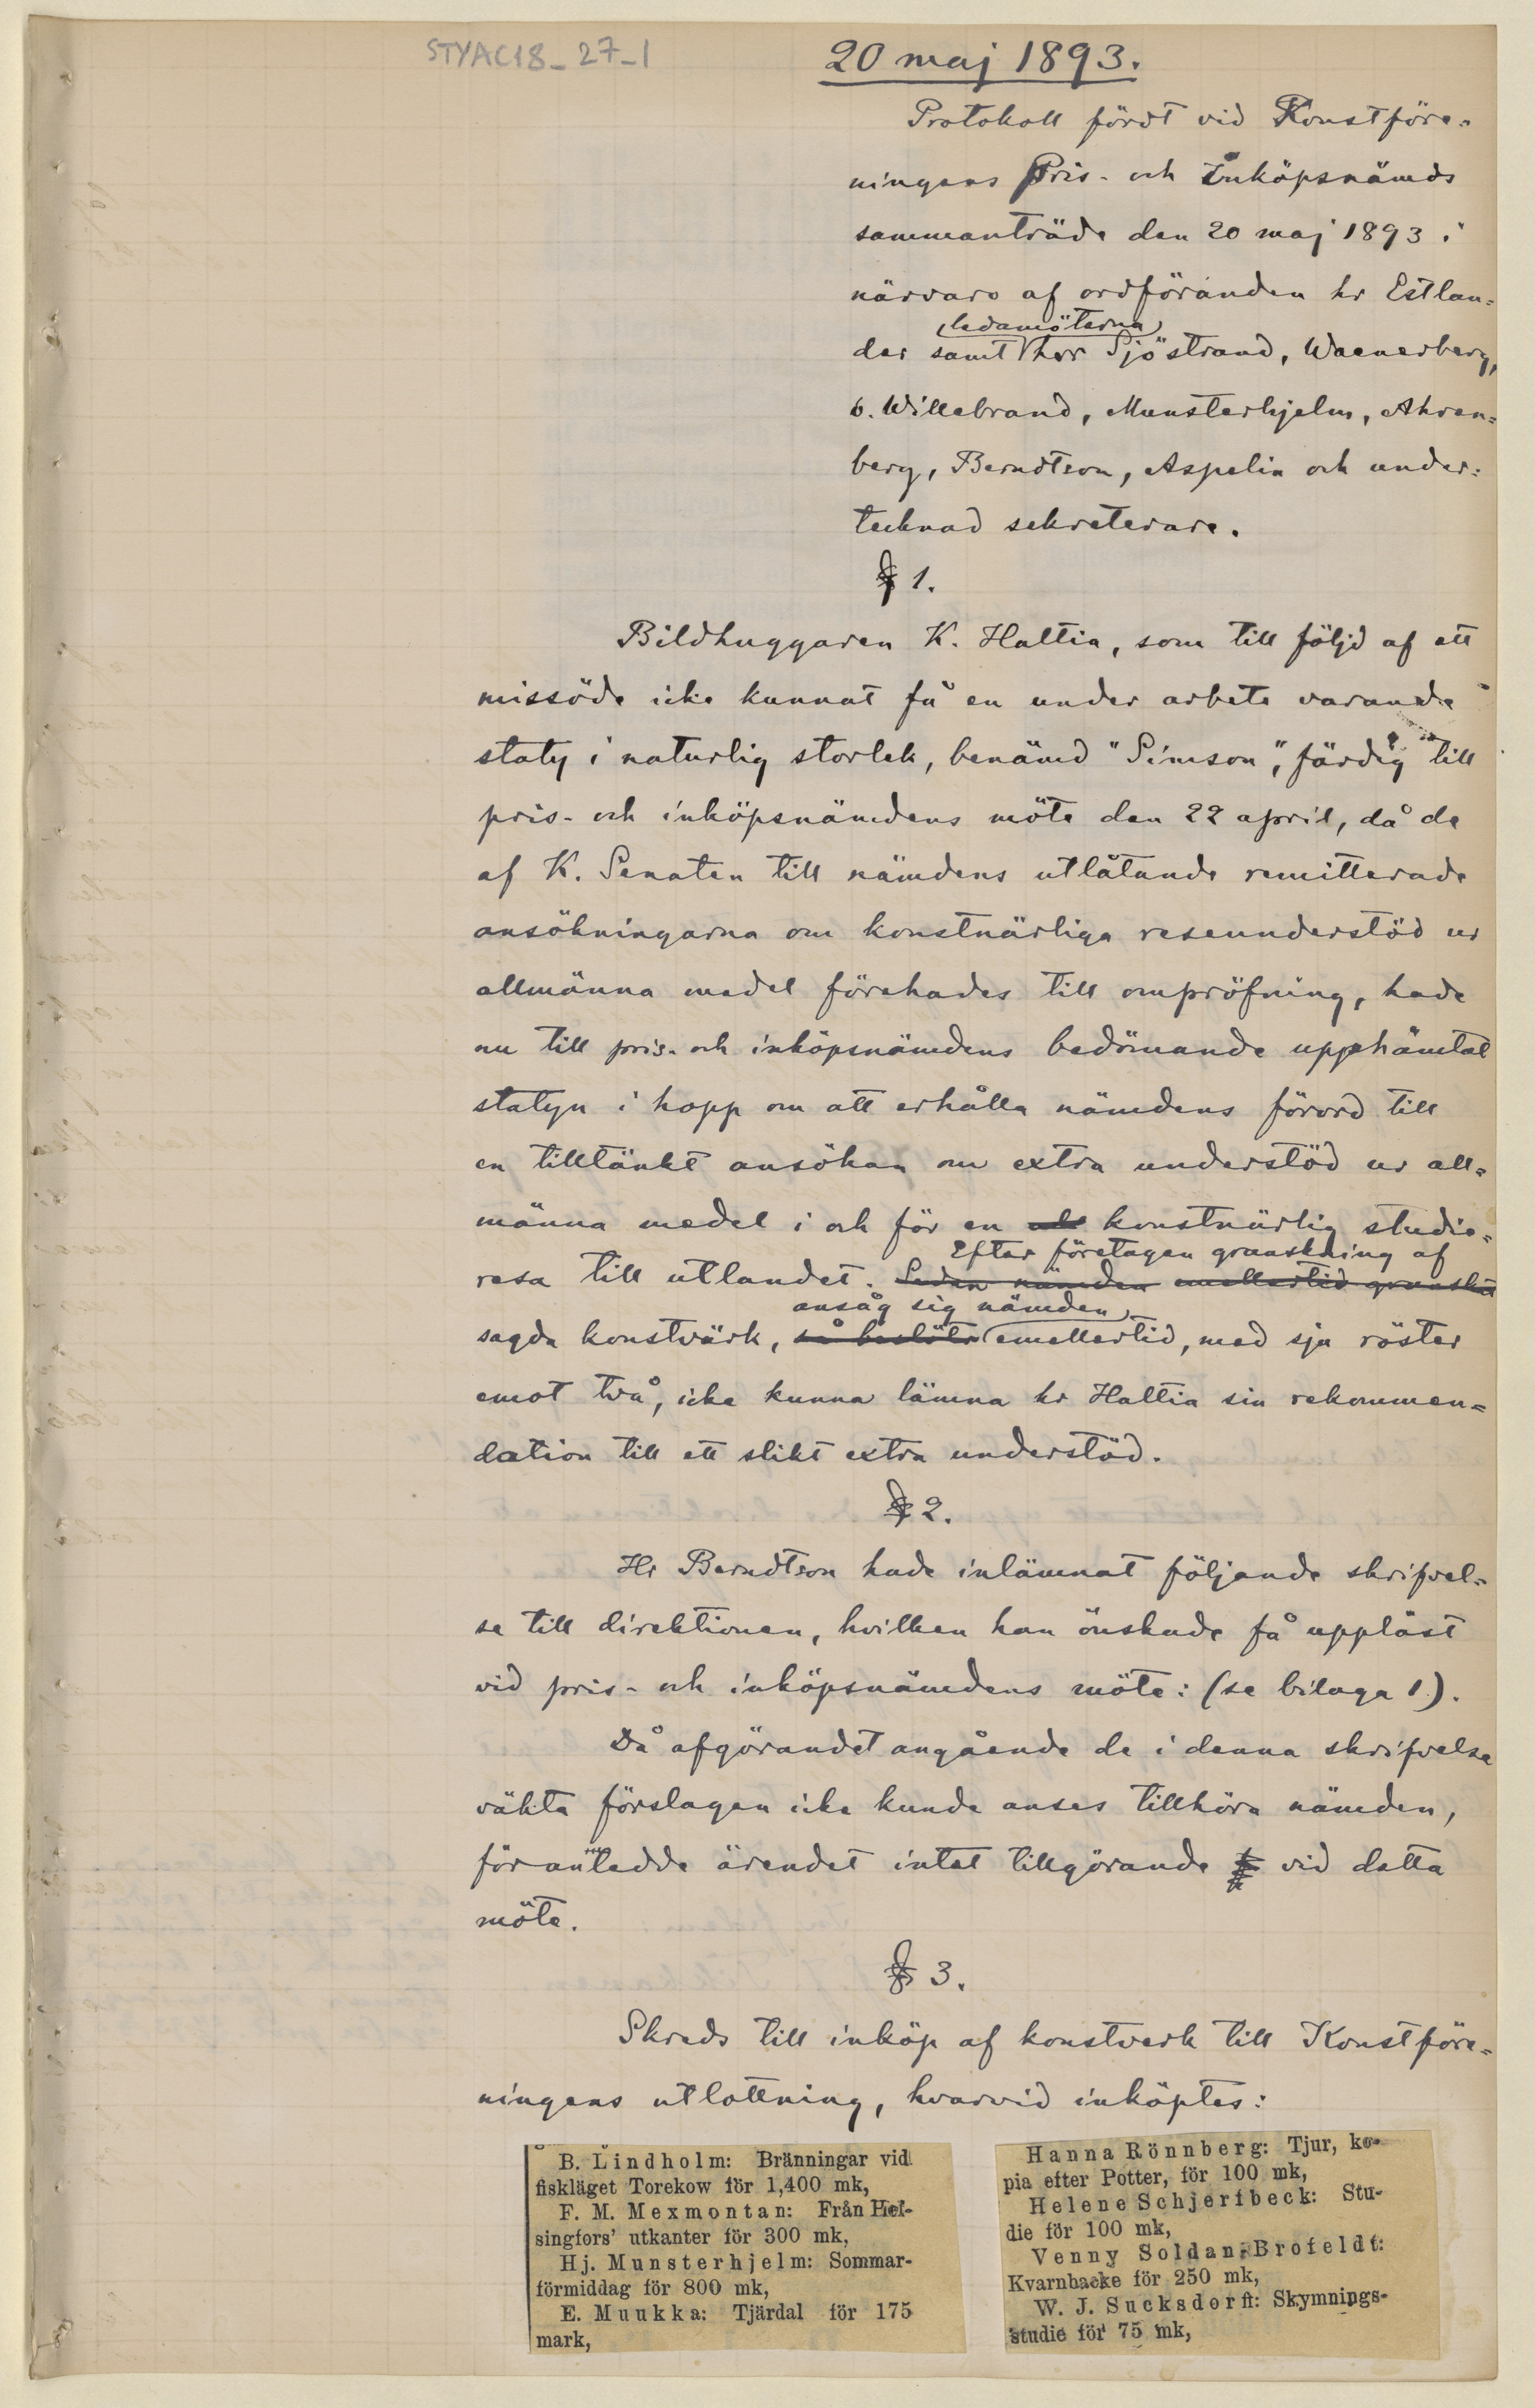 STYAC18_27_1
20 maj 1893.
Protokoll fördt vid Konstföre-
ningens Pris- och Inköpsnämds
sammanträde den 20 maj 1893 i
närvaro af ordföranden hr Estlan-
ledamöterna
der samt hrr Sjöstrand, Waenerberg,
v. Willebrand, Munsterhjelm, Ahren-
berg, Berndtson, Aspelin och under-
tecknad sekreterare.
§ 1.
Bildhuggaren K. Haltia, som till följd af ett
missöde icke kunnat få en under arbete varande
staty i naturlig storlek, benämd "Simson", färdig till
pris- och inköpsnämdens möte den 22 april, då de
af K. Senaten till nämdens utlåtande remitterade
ansökningarna om konstnärliga reseunderstöd ur
allmänna medel förehades till ompröfning, hade
nu till pris- och inköpsnämdens bedömande upphämtat
statyn i hopp om att erhålla nämdens förord till
en tilltänkt ansökan om extra understöd ur all-
männa medel i och för en konstnärlig studie-
Efter företagen granskning af
resa till utlandet. Sedan nämden emellertid granskat
ansåg sig nämden
sagda konstvärk, så beslöts emellertid, med sju röster
emot två, icke kunna lämna hr Haltia sin rekommen-
dation till ett slikt extra understöd.
§ 2.
Hr Berndtson hade inlämnat följande skrifvel-
se till direktionen, hvilken han önskade få uppläst
vid pris- och inköpsnämdens möte: (se bilaga 1).
Då afgörandet angående de i denna skrifvelse
väkta förslagen icke kunde anses tillhöra nämden,
föranledde ärendet intet tillgörande vid detta
möte.
§ 3.
Skreds till inköp af konstverk till Konstföre-
ningens utlottning, hvarvid inköptes:
B. Lindholm: Bränningar vid
fiskläget Torekow för 1,400 mk,
F. M. Mexmontan: Från Hel-
singfors' utkanter för 300 mk,
Hj. Munsterhjelm: Sommar-
förmiddag för 800 mk,
E. Muukka: Tjärdal för 175
mark,
Hanna Rönnberg: Tjur, ko-
pia efter Potter, för 100 mk,
Helene Schjerfbeck: Stu-
die för 100 mk,
Venny Soldan-Brofeldt:
Kvarnbacke för 250 mk,
W. J. Sucksdorff: Skymnings-
studie för 75 mk,